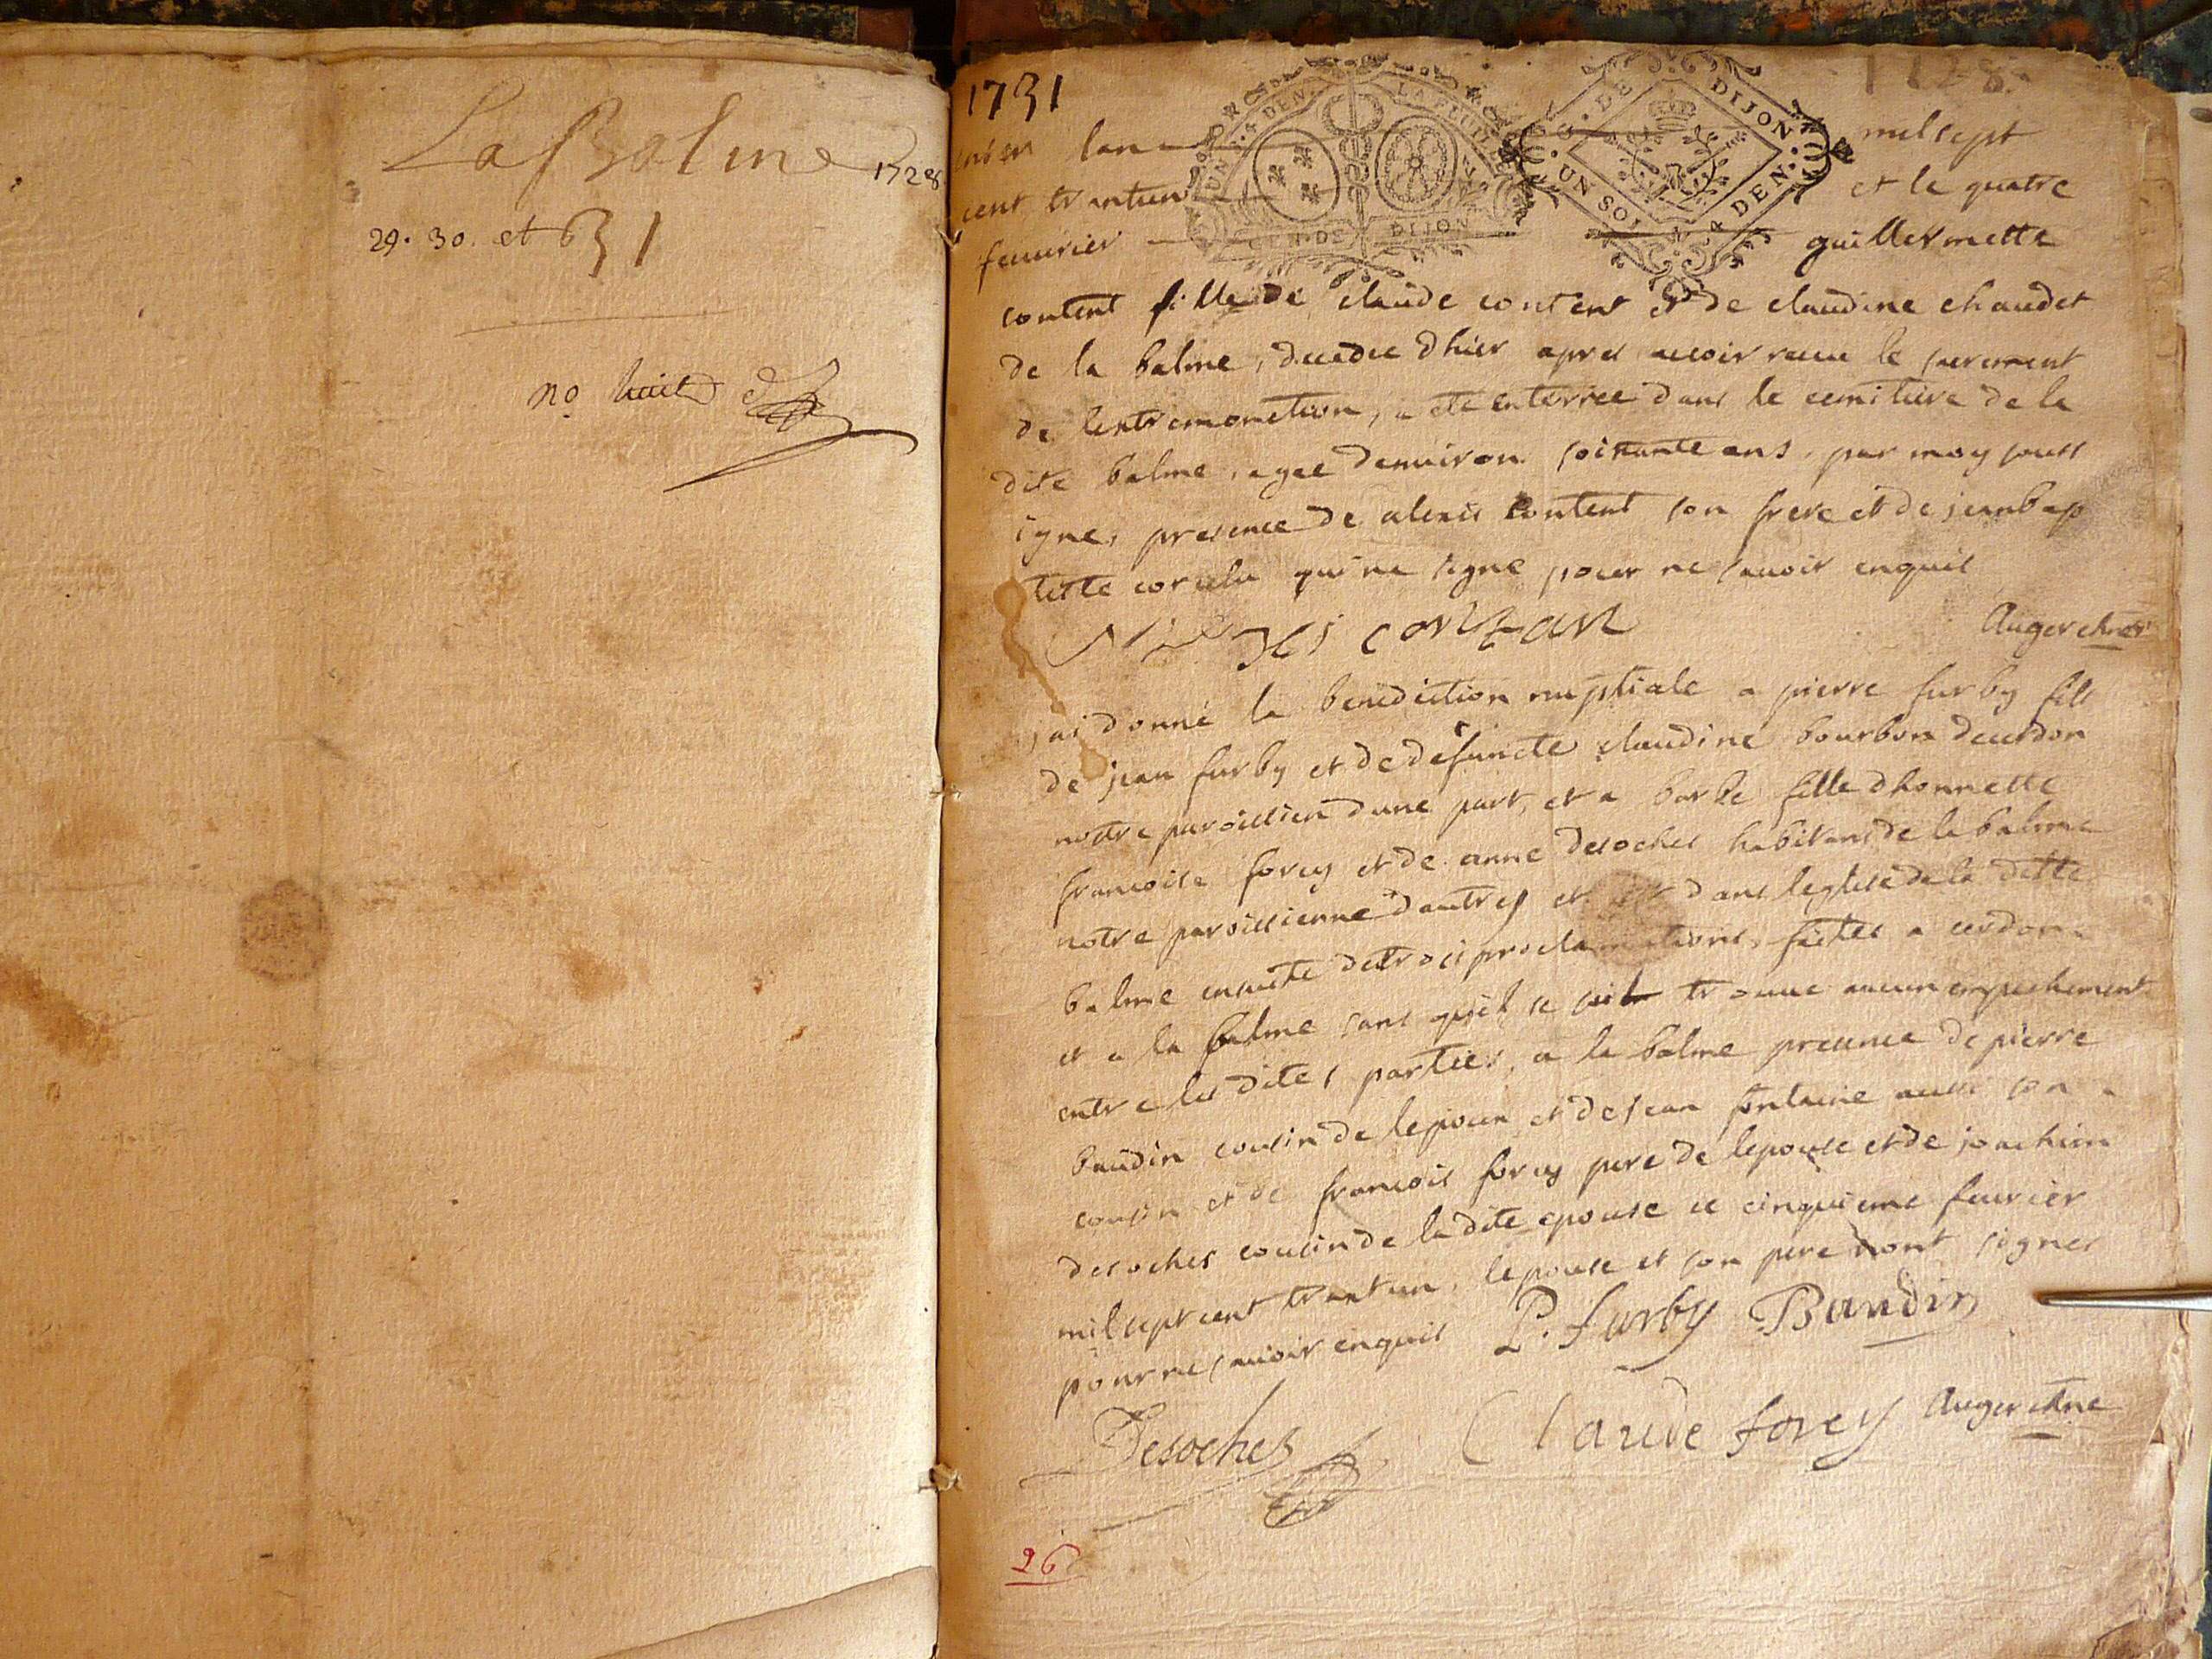 La Balme 1728
29. 30. et 31
no huit
1731
1728
UN S. 4 DEN. LA FEUILLE
GEN. DE DIJON
G. DE DIJON
UN SOL 4 DEN.
lan mil sept
cent trantun et le quatre
feuurier guillermette
content fille de claude content et de claudine chaudet
de la balme, decedee dhier apres auoir receu le sacrement
de lextremonction, a ete enterree dans le cemitiere de la
dite balme, agee denuiron soixante ans, par moy souss
igne, presence de alexis content son frere et de jeanbap
tiste qui ne signe pour ne sauoir enquis
contan
Auger
jai donné la benediction nuptiale a pierre furby fils
de jean furby et de defuncte claudine bourbon decerdon
nostre paroissien dune part, et a barbe fille dhonnette
francoise forey et de anne desoches habitans de la balme
notre paroissienne dautres et dans leglise de la ditte
balme ensuite de trois proclamations, faites a cerdon
et a la balme sans quil se soit trouue aucun empechement
entre les dites parties, a la balme presence de pierre
baudin cousin de lepoux et de jean fontaine aussi son
cousin et de francois forey pere de lepouse et de joachim
desoches cousin de la dite epouse ce cinquieme feurier
mil sept cent trantun, lepouse et son pere nont signes
pour ne sauoir enquis P. furby Baudin
Desoches Claude forey Auger
26